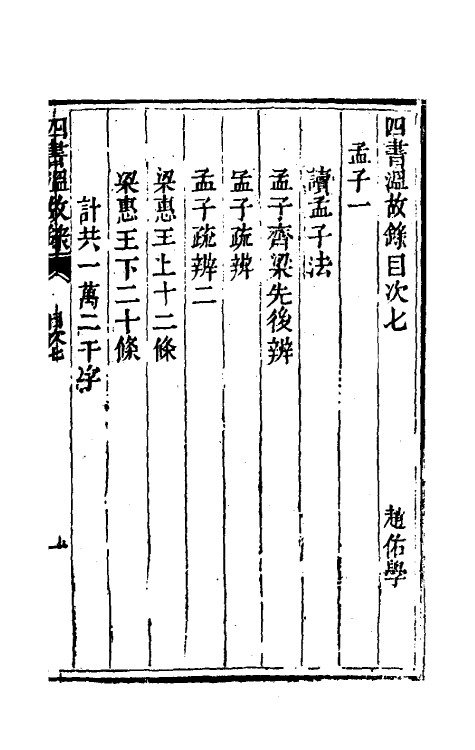 四書溫故錄目次七
趙佑學
孟子一
讀孟子法
孟子齊梁先後辨
孟子疏辨
孟子疏辨二
梁惠王上十二條
梁惠王下二十條
計共一萬二千字
四書溫故錄
目次七